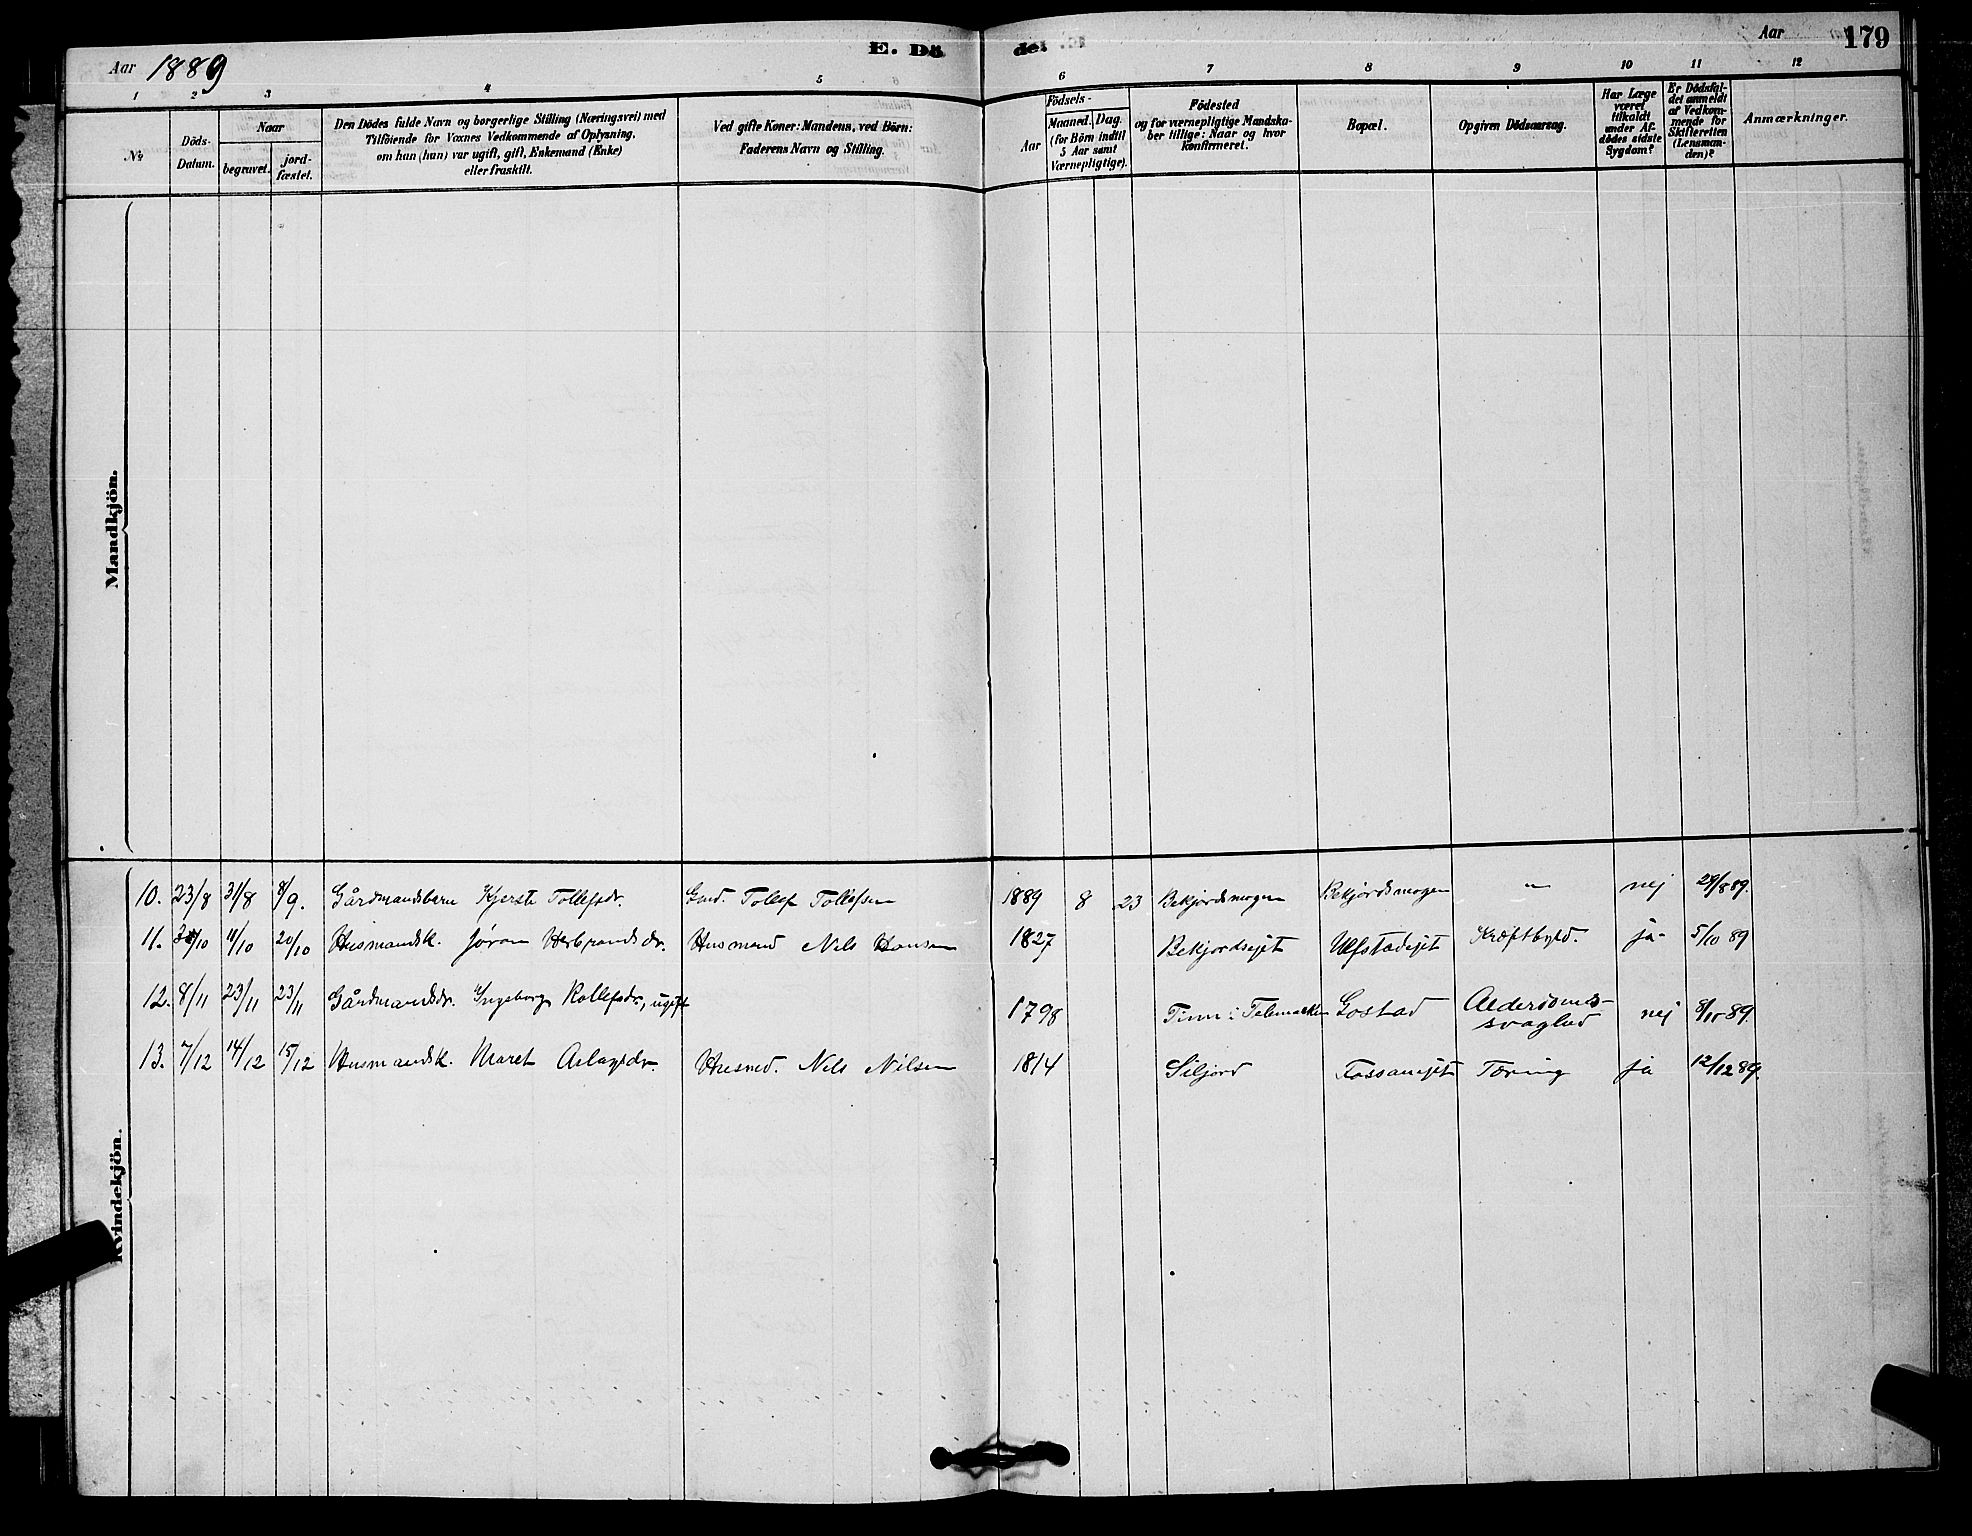 E. Dö
de.
Aar 1889
Aar
179
1 2 3 4 5 6 7 8 9 10 11 12
№
Döds-
Datum.
Naar
begravet.
jord-
fæstet.
Den Dödes fulde Navn og borgerlige Stilling (Næringsvei) med
Tilföiende for Voxnes Vedkommende af Oplysning,
om han (hun) var ugift, gift, Enkemand (Enke)
eller fraskilt.
Ved gifte Koner: Mandens, ved Börn:
Faderens Navn og Stilling.
Födsels-
Aar
Maaned. Dag.
(for Börn indtil
5 Aar samt
Værnepligtige).
Födested
og for værnepligtige Mandska-
ber tillige: Naar og hvor
konfirmeret.
Bopæl.
Opgiven Dödsaarsag.
Har Læge
været
tilkaldt
under Af-
dödes sidste
Sygdom?
Er Dödsfal-
det anmeldt
af Vedkom-
mende for
Skifteretten
(Lensman-
den)?
Anmærkninger.
Mandkjön.
Kvindekjön.
10. 23/8 31/8 8/9. Gårdmandsbarn Kjerste Tollefsdr. Gmd. Tollef Tollefsen 1889 8 23 Bekjordsmogen Bekjordsmogen " nej 29/8 89.
11. /10 11/10 20/10 Husmandsk. Jøran Herbrandsdr. Husmand Nils Hansen 1827 Bekjordsejet Ulfstadejet Kræftbyld. ja- 5/10 89
12. 8/11 23/11 23/11 Gårdmandsdr. Ingeborg Rollefsdr, ugift 1798 Tinn i Telemarken Gostad Alderdoms-
svaghed nej 89.
13. 7/12 14/12 15/12 Husmandsk. Maret Aslagsdr. Husmd. Nils Nilsen 1814 Siljord Fossanejet Tæring ja 12/12 89.